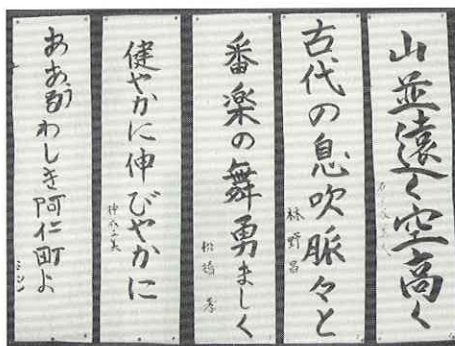 山並遠く空高く
古代の息吹脈々と
林野昌
番楽の舞勇ましく
健やかに伸びやかに
ああ麗わしき阿仁町よ